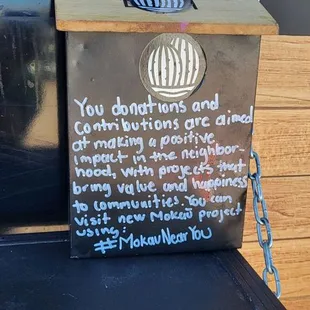 You donations and
Contributions are aimed
at making a positive
impact in the neighbor-
hood, with proyects that
bring value and happiness
to communities. You can
visit new Mokaü project
using:
#MokauNearYou